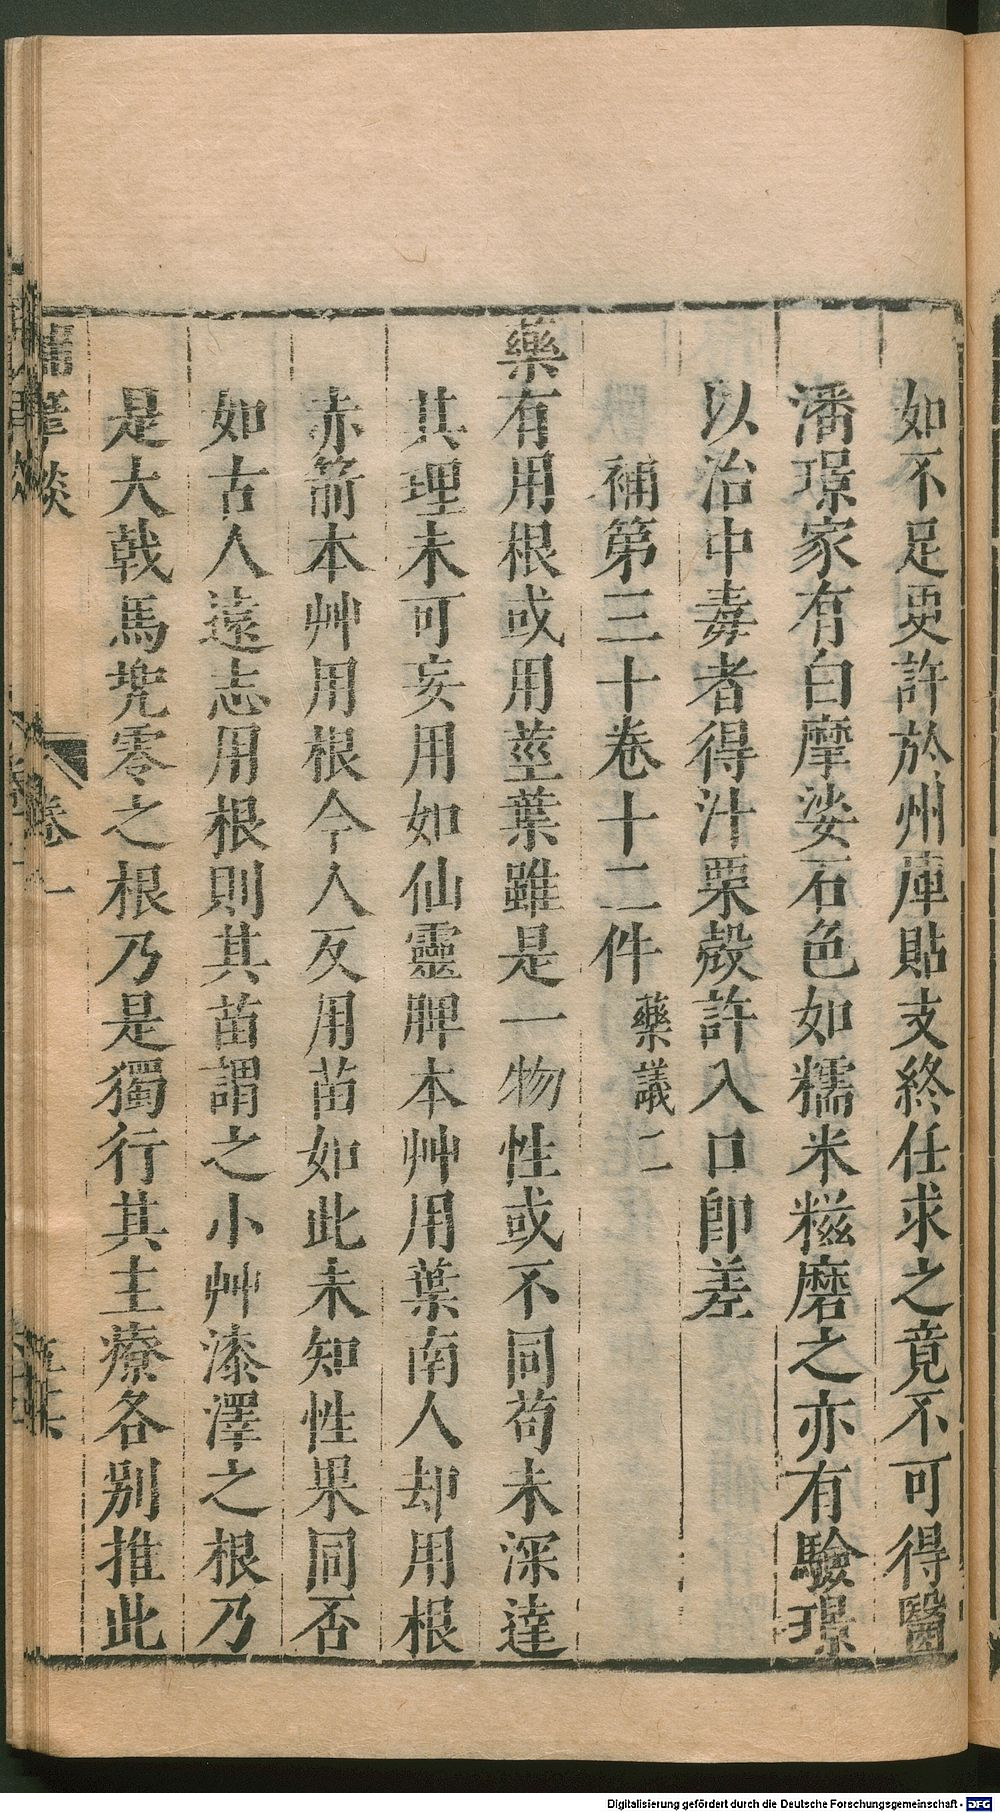 如不足更許於州庫貼支終任求之竟不可得醫
潘璟家有白摩娑石色如糯米糍磨之亦有驗璟
以治中毒者得汁栗殻許入口卽差
補第三十卷十二件 藥議二
藥有用根或用莖葉雖是一物性或不同苟未深達
其理未可妄用如仙靈脾本艸用葉南人却用根
赤箭本艸用根今人反用苗如此未知性果同否
如古人遠志用根則其苗謂之小艸漆澤之根乃
是大戟馬兜零之根乃是獨行其主療各別推此
卷一
Digitalisierung gefördert durch die Deutsche Forschungsgemeinschaft - DFG